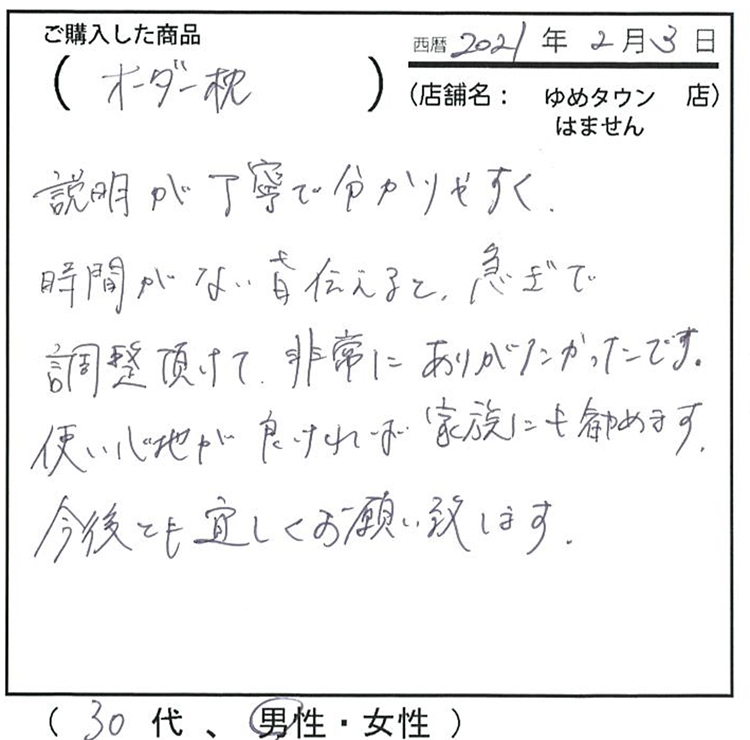 ご購入した商品
(オーダー枕)
西暦 2021年2月3日
(店舗名: ゆめタウン 店)
はません
説明が丁寧で分かりやすく、
時間がない旨伝えると、急ぎで
調整頂けて、非常にありがたかったです。
使い心地が良ければ家族にも勧めます。
今後とも宜しくお願い致します。
(30代、男性・女性)